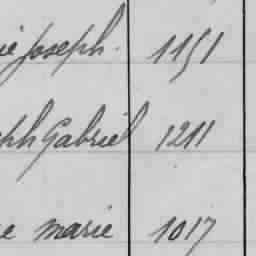 ie Joseph. 1151
phh Gabriel 1211
e marie 1017